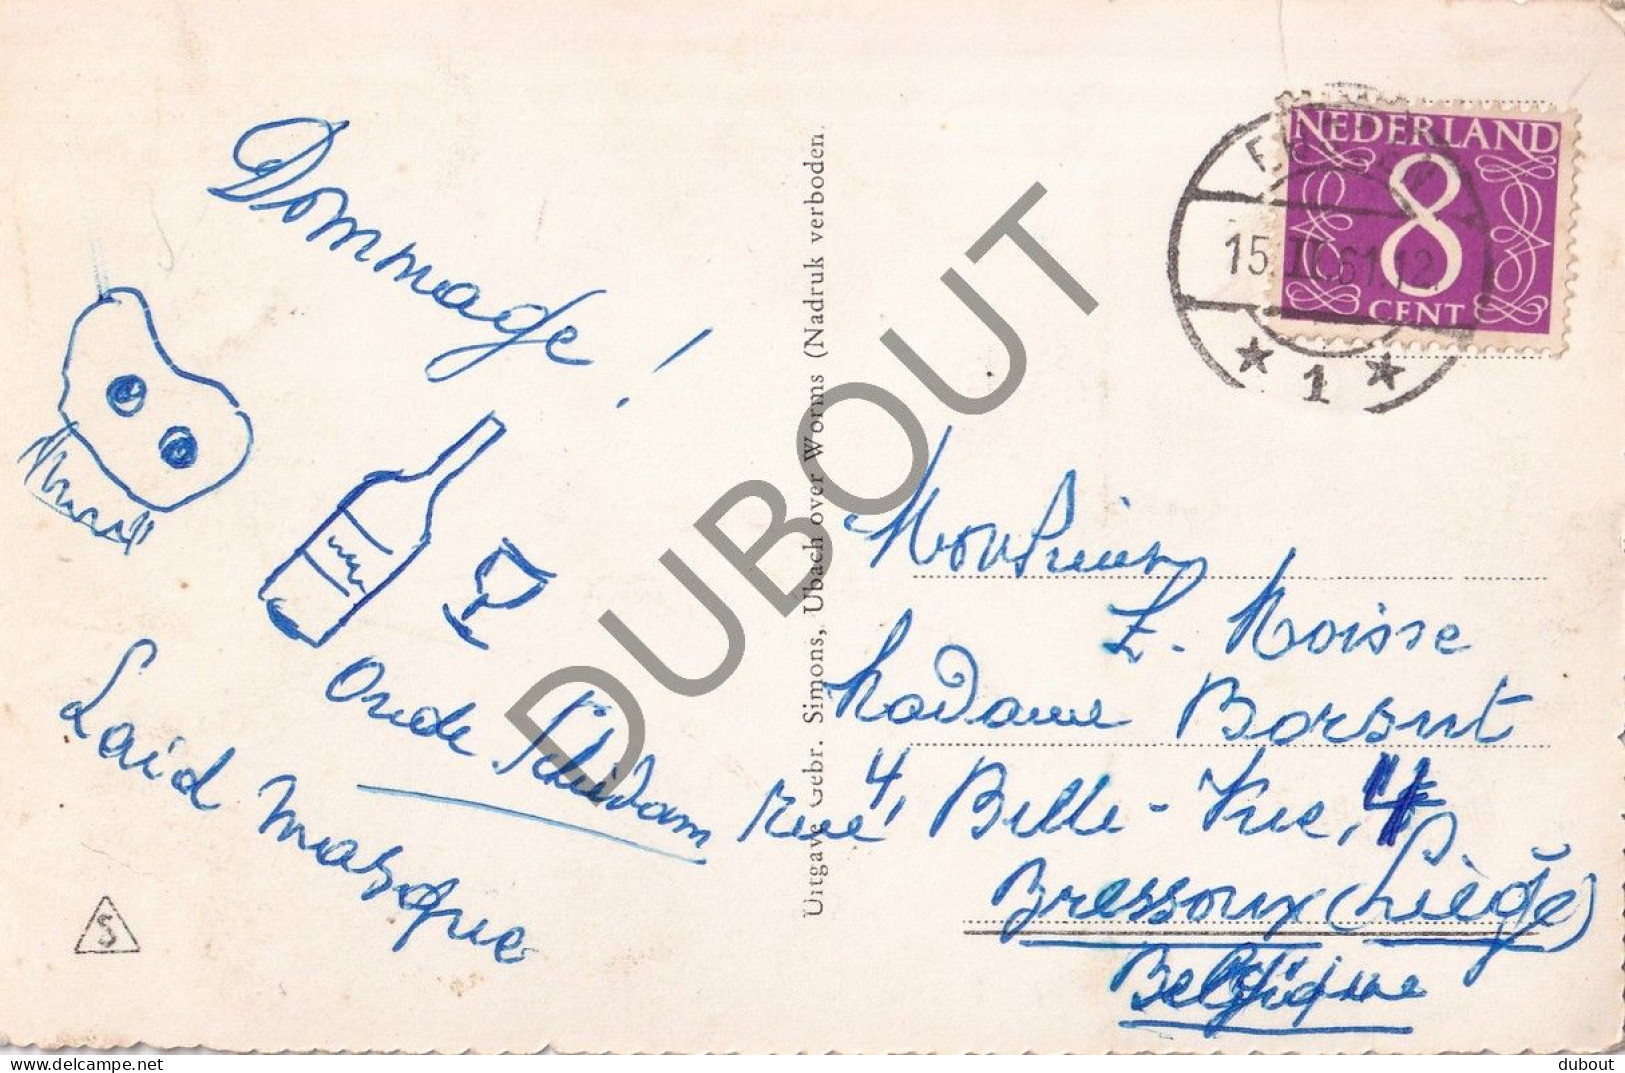 Dommage !
Oude Schiedam
Laid masque
S
Uitgave Gebr. Simons, Ubach over Worms (Nadruk verboden.
NEDERLAND
8
CENT
15. II. 61. 12
1
Monsieur
Z. Moisse
Madame Borsut
rue 4, Belle-Vue, 4
Bressoux (Liège)
Belgique
DUBOUT
www.delcampe.net
dubout